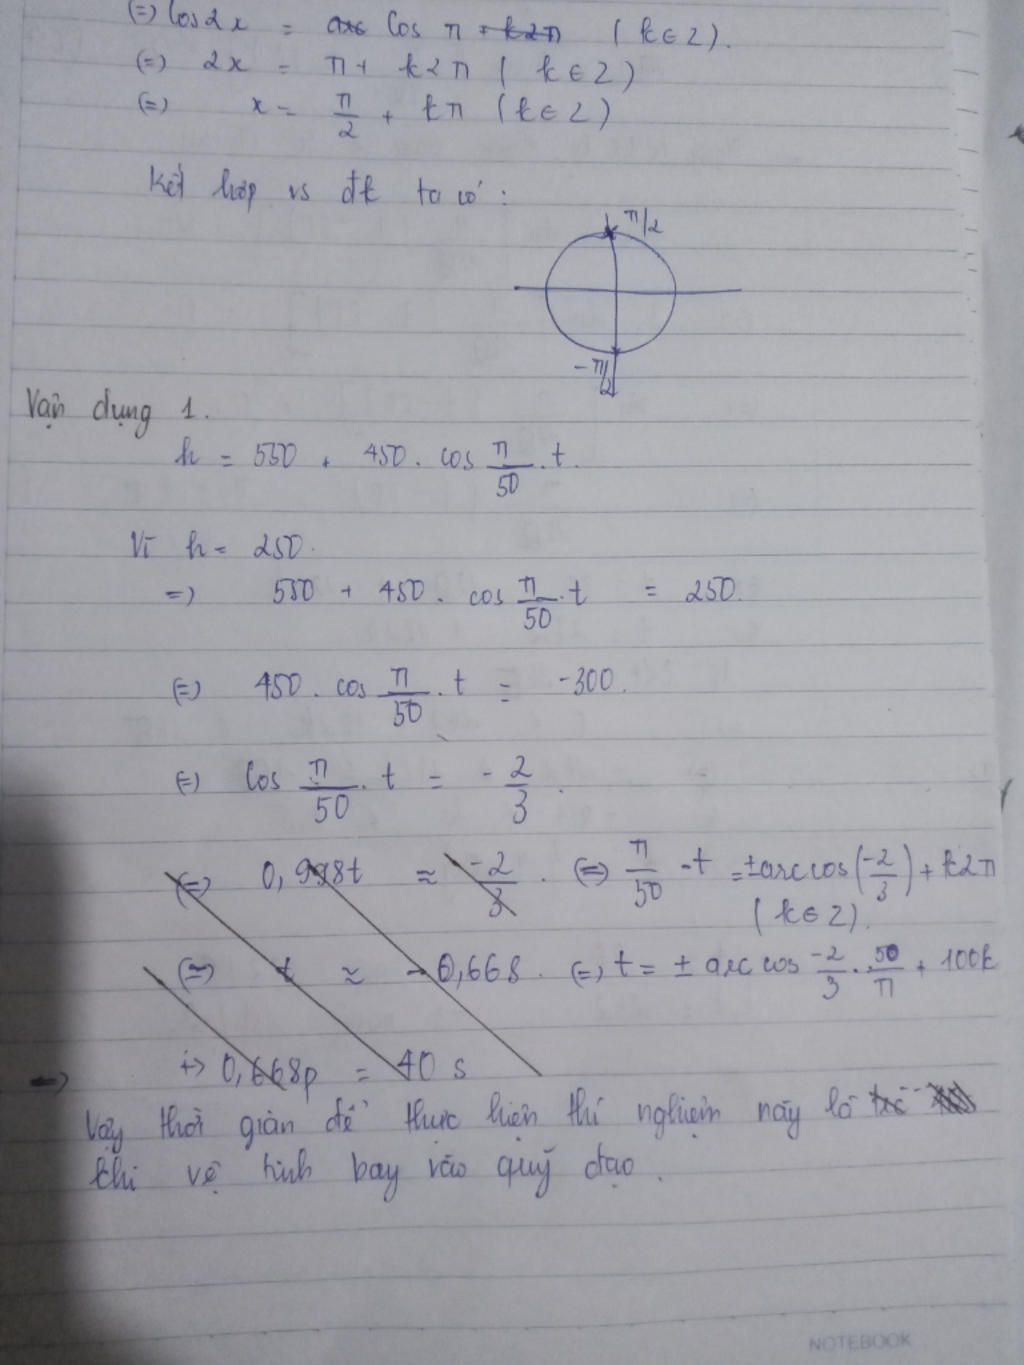 (=) Cos2x = cos π (k∈Z).
(=) 2x = π + k2π (k∈Z)
(=) x = π/2 + kπ (k∈Z)
Kết hợp vs đk ta có :
π/2
-π/2
Vận dụng 1.
h = 550 + 450 . cos π/50 . t.
Vì h = 250.
=) 550 + 450 . cos π/50 . t = 250.
(=) 450 . cos π/50 . t = -300.
(=) cos π/50 . t = - 2/3 .
(=) 0,998t ≈ -2/3 . (=) π/50 . t = ±arccos(-2/3) + k2π
(k∈Z).
(≈) t ≈ -0,668 . (=) t = ± arccos -2/3 . 50/π + 100k
=> 0,668p = 40 s
Vậy thời gian để thực hiện thí nghiệm này là
khi vệ tinh bay vào quỹ đạo .
NOTEBOOK